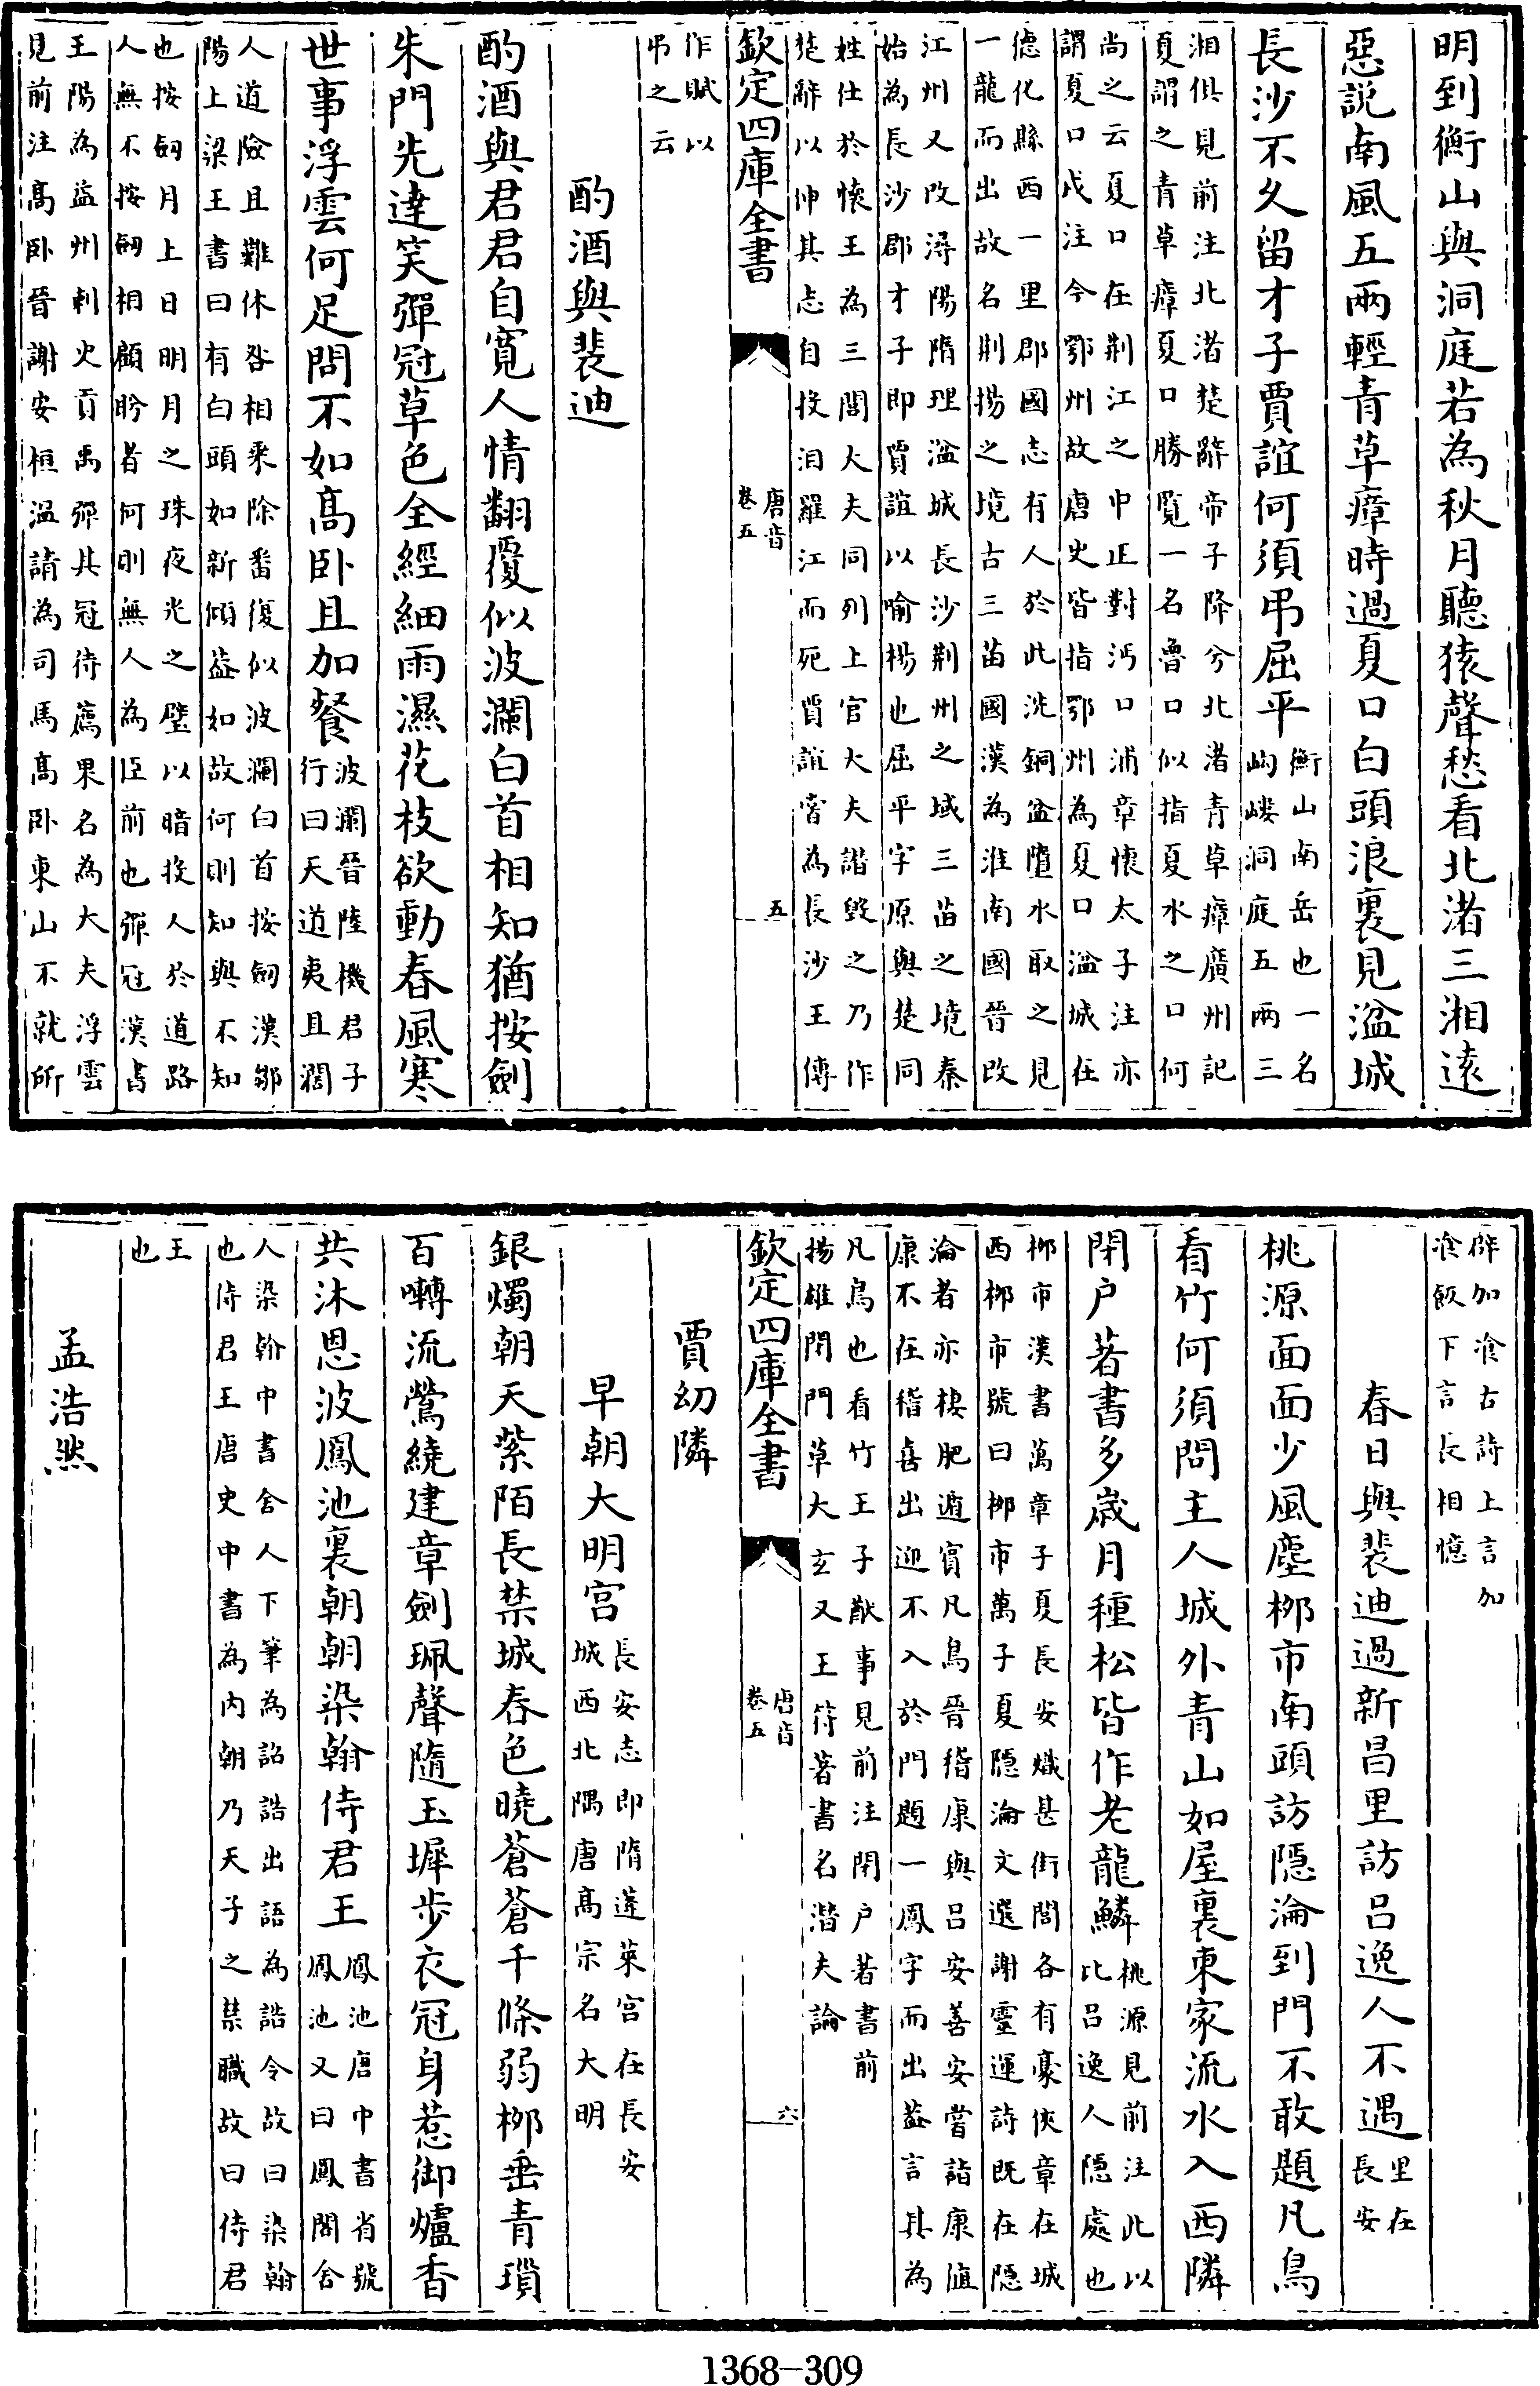 明到衡山與洞庭若為秋月聽猿聲愁看北渚三湘遠
惡說南風五兩輕青草瘴時過夏口白頭浪裏見湓城
長沙不久留才子賈誼何須弔屈平
衡山南岳也一名
岣嶁洞庭五兩三
湘俱見前注北渚楚辭帝子降兮北渚青草瘴廣州記
夏謂之青草瘴夏口勝覽一名魯口似指夏水之口何
尚之云夏口在荆江之中正對沔口浦章懷太子注亦
謂夏口戍注今鄂州故唐史皆指鄂州為夏口湓城在
德化縣西一里郡國志有人於此洗銅盆墮水取之見
一龍而出故名荆揚之境古三苗國漢為淮南國晉改
江州又改潯陽隋理湓城長沙荆州之域三苗之境秦
始為長沙郡才子即賈誼以喻楊也屈平字原與楚同
姓仕於懷王為三閭大夫同列上官大夫譖毀之乃作
楚辭以伸其志自投汨羅江而死賈誼嘗為長沙王傅
欽定四庫全書
唐音
卷五
五
作賦以
弔之云
酌酒與裴迪
酌酒與君君自寬人情翻覆似波瀾白首相知猶按劍
朱門先達笑彈冠草色全經細雨濕花枝欲動春風寒
世事浮雲何足問不如高卧且加餐
波瀾晉陸機君子
行曰天道夷且濶
人道險且難休咎相乘除番復似波瀾白首按劒漢鄒
陽上梁王書曰有白頭如新傾葢如故何則知與不知
也按劒月上日明月之珠夜光之璧以暗投人於道路
人無不按劒相顧眄者何則無人為臣前也彈冠漢書
王陽為益州刺史貢禹彈其冠待薦果名為大夫浮雲
見前注高卧晉謝安桓温請為司馬高卧東山不就所
辟加飡古詩上言加
飡飯下言長相憶
春日與裴迪過新昌里訪吕逸人不遇
里在
長安
桃源面面少風塵栁市南頭訪隱淪到門不敢題凡鳥
看竹何須問主人城外青山如屋裏東家流水入西隣
閉户著書多歳月種松皆作老龍鱗
桃源見前注此以
比吕逸人隠處也
栁市漢書萬章子夏長安熾甚街閭各有豪俠章在城
西栁市號曰栁市萬子夏隠淪文選謝靈運詩既在隠
淪者亦棲肥遁賓凡鳥晉稽康與吕安善安嘗詣康值
康不在稽喜出迎不入於門題一鳳字而出葢言其為
凡鳥也看竹王子猷事見前注閉户著書前
揚雄閉門草大玄又王符著書名潜夫論
欽定四庫全書
唐音
卷五
六
賈幼隣
早朝大明宫
長安志即隋蓬萊宫在長安
城西北隅唐高宗名大明
銀燭朝天紫陌長禁城春色曉蒼蒼千條弱栁垂青瑣
百囀流鶯繞建章劍珮聲隨玉墀歩衣冠身惹御爐香
共沐恩波鳳池裏朝朝染翰侍君王
鳳池唐中書省號
鳳池又曰鳳閣舍
人染翰中書舍人下筆為詔誥出語為誥令故曰染翰
也侍君王唐史中書為内朝乃天子之禁職故曰侍君
王
也
孟浩然
1368-309